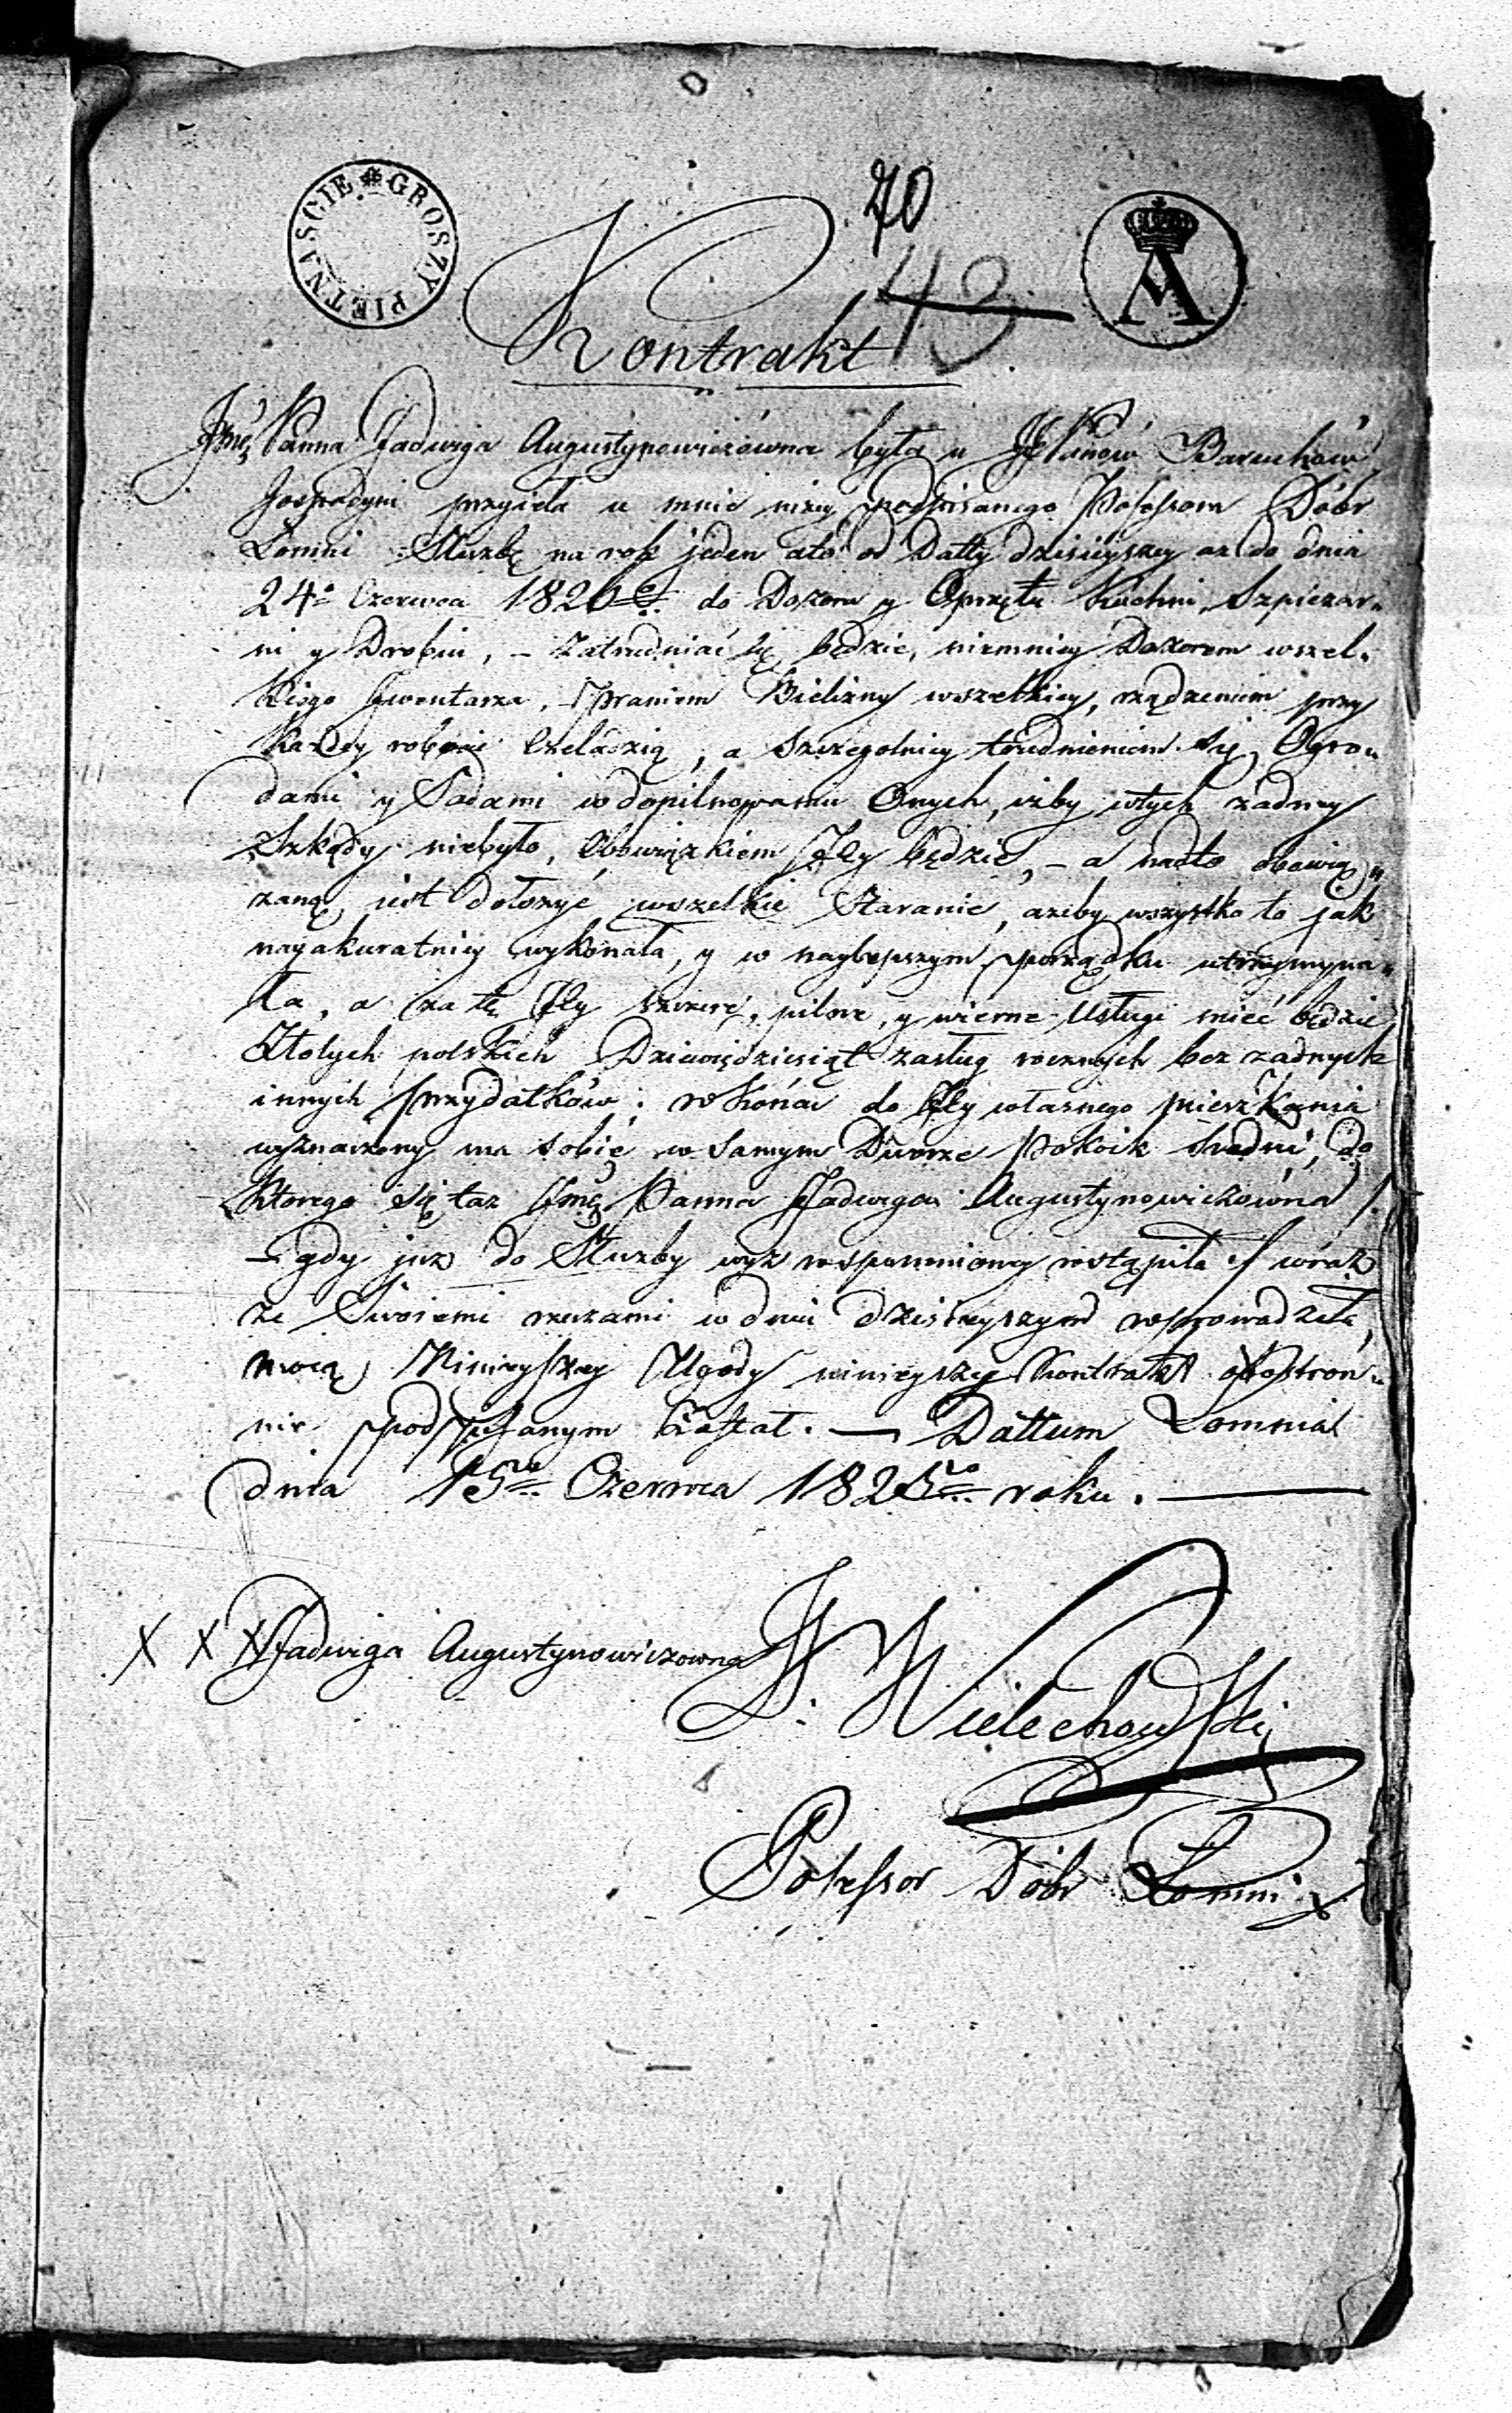 GROSZY PIETNAŚCIE
70
43
A
Kontrakt
Jmć Panna Jadwiga Augustynowiczówna była u JPanów Baruchów
Gospodyni przyięła u mnie niżey podpisanego Possessora Dóbr
Łomni Służbę na rok jeden ato od Datty dzisieyszey aż do dnia
24o Czerwca 1826 do Dozoru y Oprzętu Kuchni, Szpiżar„
ni y Drobiu, – zatrudniać się będzie, niemniey Dozorem wszel„
kiego Inwentarza, – Praniem Bielizny wszelkiey, rządzeniem przy
każdey robocie Czeladzią, a szczegolniey trudnieniem się Ogro„
dami y Sadami w dopilnowaniu Onych, iżby wtych żadney
Szkody niebyło, Obowiązkiem Jey będzie, – a nadto obowią„
zaną jest dołożyć wszelkie Staranie, ażeby wszystko to jak
nayakuratniey wykonała, y w naylepszym porządku utrzymywa„
ła, a za te Jey szczere, pilne, y wierne Usługi mieć będzie
Złotych polskich Dziewiędziesiąt zasług rocznych bez żadnych
innych przydatków; wkońcu do Jey własnego mieszkania
wyznaczony ma sobie w samym Dworze Pokoik średni, do
ktorego się taż Jmć Panna Jadwiga Augustynowiczówna /.
– gdy już do Służby wyż wspomnioney wstąpiła ./ wraz
ze Swoiemi rzeczami w dniu dzisieyszym wprowadziła,
mocą Ninieyszey Ugody ninieyszy Kontrakt obostron„
nie podpisanym został. — Dattum Łomnia
dnia 15go Czerwca 1825go roku. —
X X X Jadwiga Augustynowiczowna
W. Wielechowski
Possessor Dóbr Łomni